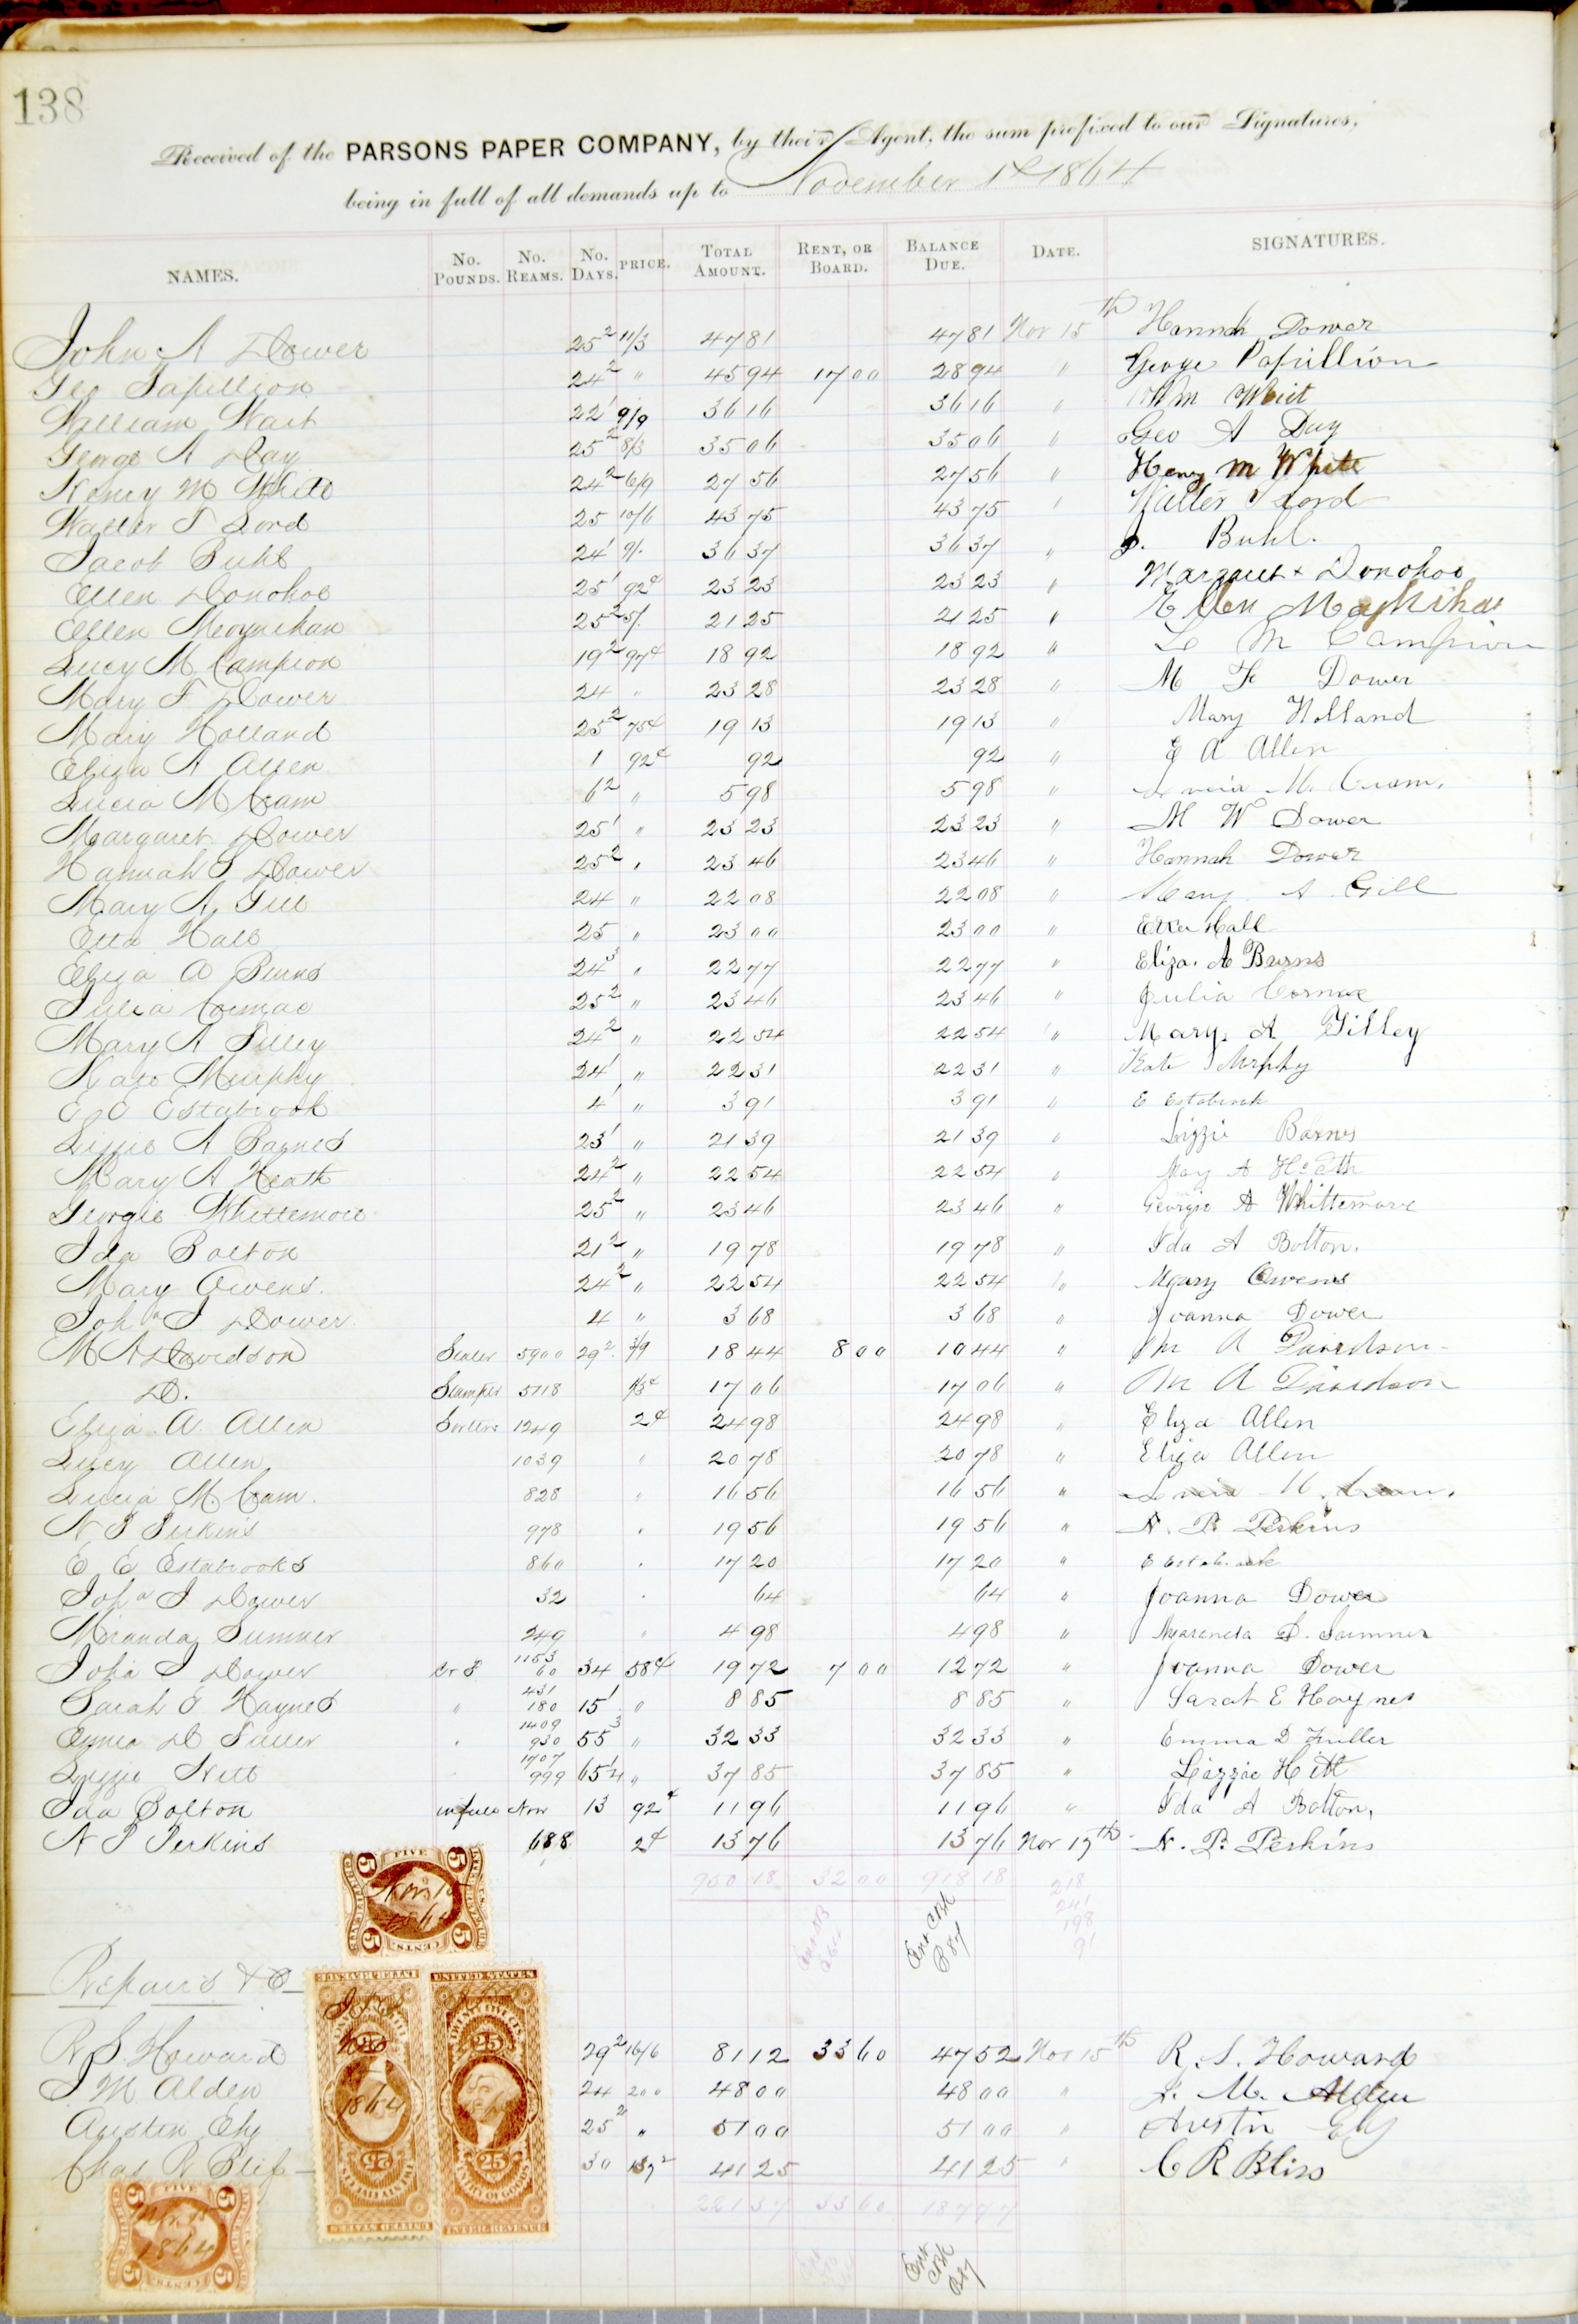 138
Received of the PARSONS PAPER COMPANY, by their Agent, the sum prefixed to our Signatures,
being in full of all demands up to November 1st 1864
NAMES. No. POUNDS. No. REAMS. No. DAYS. PRICE. TOTAL AMOUNT. RENT, OR BOARD. BALANCE DUE. DATE. SIGNATURES.
John A Dower 25² 11/3 47 81 47 81 Nov 15th Hannah Dower
Geo Papillion 24² " 45 94 17 00 28 94 " George Papillion
William Wait 22¹ 9/9 36 16 36 16 " Wm Wait
George A Day 25² 8/3 35 06 35 06 " Geo A Day
Henry M White 24² 6/9 27 56 27 56 " Henry M White
Walter T Lord 25 10/6 43 75 43 75 " Walter T Lord
Jacob Buhl 24¹ 9/. 36 37 36 37 " J. Buhl.
Ellen Donohoe 25¹ 92¢ 23 23 23 23 " Margaret + Donohoe
Ellen Moynihan 25² 5/. 21 25 21 25 " Ellen
Lucy M Campion 19² 97¢ 18 92 18 92 " L M Campion
Mary F Dower 24 " 23 28 23 28 " M F Dower
Mary Holland 25² 75¢ 19 13 19 13 " Mary Holland
Eliza A Allen 1 92¢ 92 92 " E A Allen
Lucia M Cram 6² " 5 98 5 98 " Lucia M. Cram.
Margaret Dower 25¹ " 23 23 23 23 " M W Dower
Hannah J Dower 25² " 23 46 23 46 " Hannah Dower
Mary A Gill 24 " 22 08 22 08 " Mary A Gill
Etta Hall 25 " 23 00 23 00 " Etta Hall
Eliza A Burns 24³ " 22 77 22 77 " Eliza. A Burns
Julia Cormac 25² " 23 46 23 46 " Julia Cormac
Mary A Tilley 24² " 22 54 22 54 " Mary. A Tilley
Kate Murphy 24¹ " 22 31 22 31 " Kate Murphy
E E Estabrook 4¹ " 3 91 3 91 " E Estabrook
Lizzie A Barnes 23¹ " 21 39 21 39 " Lizzie Barnes
Mary A Heath 24² " 22 54 22 54 " Mary A Heath
Georgie Whittemore 25² " 23 46 23 46 " Georgie A Whittemore
Ida Bolton 21² " 19 78 19 78 " Ida A Bolton.
Mary Owens. 24² " 22 54 22 54 " Mary Owens
Joha J Dower. 4 " 3 68 3 68 " Joanna Dower
M A Davidson Sealer 5900 29² 3/9 18 44 8 00 10 44 " M A Davidson
Do. Stamper 5118 1/3¢ 17 06 17 06 " M A Davidson
Eliza A. Allen Sorters 1249 2¢ 24 98 24 98 " Eliza Allen
Lucy Allen 1039 " 20 78 20 78 " Eliza Allen
Lucia M. Cram. 828 " 16 56 16 56 " Lucia M. Cram.
N P Perkins 978 " 19 56 19 56 " N. P. Perkins
E E Estabrooks 860 " 17 20 17 20 " E Estabrook
Joha J Dower 32 " 64 64 " Joanna Dower
Miranda Sumner 249 " 4 98 4 98 " Maranda D. Sumner
Joha J Dower 1153 60 34 58¢ 19 72 7 00 12 72 " Joanna Dower
Sarah E Haynes " 431 180 15¹ " 8 85 8 85 " Sarah E Haynes
Emma D Fuller " 1409 930 55³ " 32 33 32 33 " Emma D Fuller
Lizzie Hitt 1707 999 65¼ " 37 85 37 85 " Lizzie Hitt
Ida Bolton 13 92¢ 11 96 11 96 " Ida A Bolton,
N P Perkins 688 2¢ 13 76 13 76 Nov 17th N. P. Perkins
950 18 32 00 918 18
218
241
198
91
FIVE CENTS. 5 5 5 5
Nov 15 1864
Ent CBk
B 87
Repairs &c
UNITED STATES
25
INTER. REVENUE
1864
R S. Howard 29² 16/6 81 12 33 60 47 52 Nov 15th R. S. Howard
J M Alden 24 200 48 00 48 00 " J. M. Alden
Austin Ely 25² " 51 00 51 00 " Austin Ely
Chas R Bliss 30 137² 41 25 41 25 " C R Bliss
221 37 33 60 187 77
FIVE CENTS 5 5 5 5
1864
Ent CBk
B87